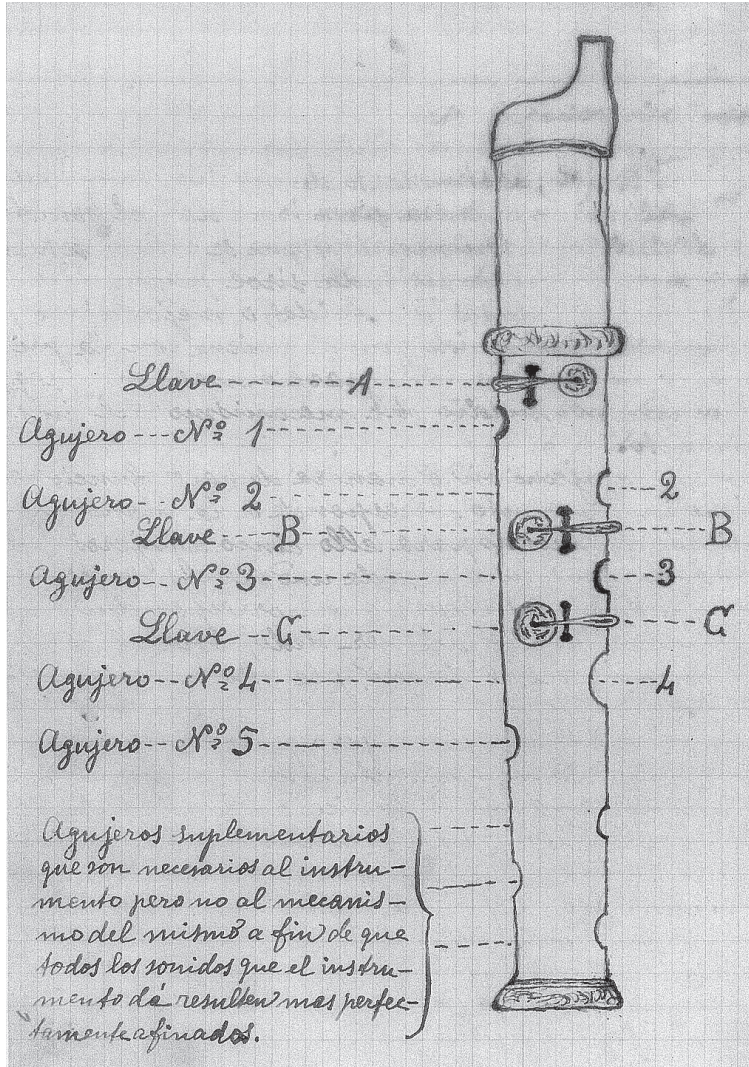 Llave A
Agujero Nº 1
Agujero Nº 2 2
Llave B B
Agujero Nº 3 3
Llave C C
Agujero Nº 4 4
Agujero Nº 5
Agujeros suplementarios
que son necesarios al instru-
mento pero no al mecanis-
mo del mismo a fin de que
todos los sonidos que el instru-
mento dá resulten mas perfec-
tamente afinados.